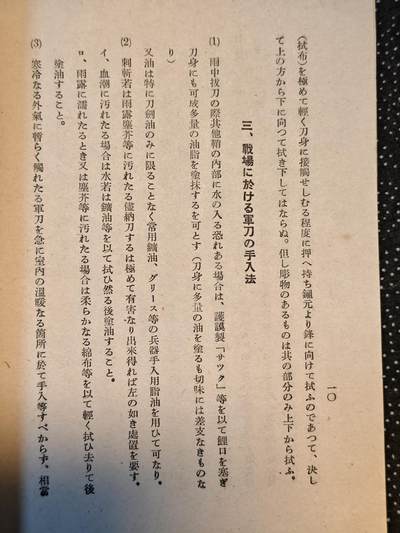 一〇
(拭布)を極めて輕く刀身に接觸せしむる程度に押へ持ち鎺元より鋒に向けて拭ふのであつて、決し
て上の方から下に向つて拭き下してはならぬ。但し彫物のあるものは其の部分のみ上下から拭ふ。
三、戰場に於ける軍刀の手入法
(1) 雨中拔刀の際其他鞘の內部に水の入る恐れある場合は、護謨製「サツク」等を以て鯉口を塞ぎ
刀身にも可成多量の油脂を塗抹するを可とす(刀身に多量の油を塗るも切味には差支なきものな
り)
又油は特に刀劍油のみに限ることなく常用鑛油、グリース等の兵器手入用脂油を用ひて可なり。
(2) 刺斬若は雨露塵芥等に汚れたる儘納刀するは極めて有害なり出來得れば左の如き處置を要す。
イ、血潮に汚れたる場合は水若は鑛油等を以て拭ひ然る後塗油すること。
ロ、雨露に濡れたるとき又は塵芥等に汚れたる場合は柔らかなる綿布等を以て輕く拭ひ去りて後
塗油すること。
(3) 寒冷なる外氣に暫らく觸れたる軍刀を急に室內の溫暖なる箇所に於て手入等すべからず、相當